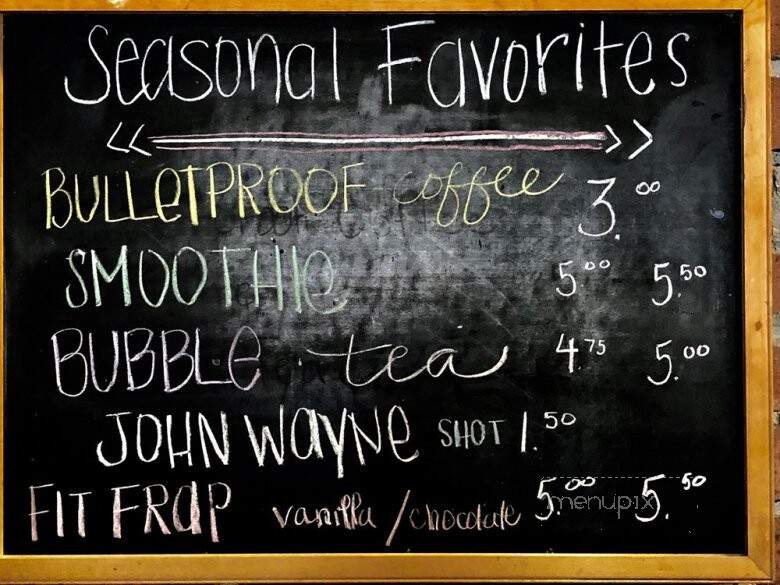 Seasonal Favorites
BULLETPROOF coffee 3.00
SMOOTHIE 5.00 5.50
BUBBLE tea 4.75 5.00
JOHN WAYNE SHOT 1.50
FIT FRAP vanilla / chocolate 5.00 5.50
menupix